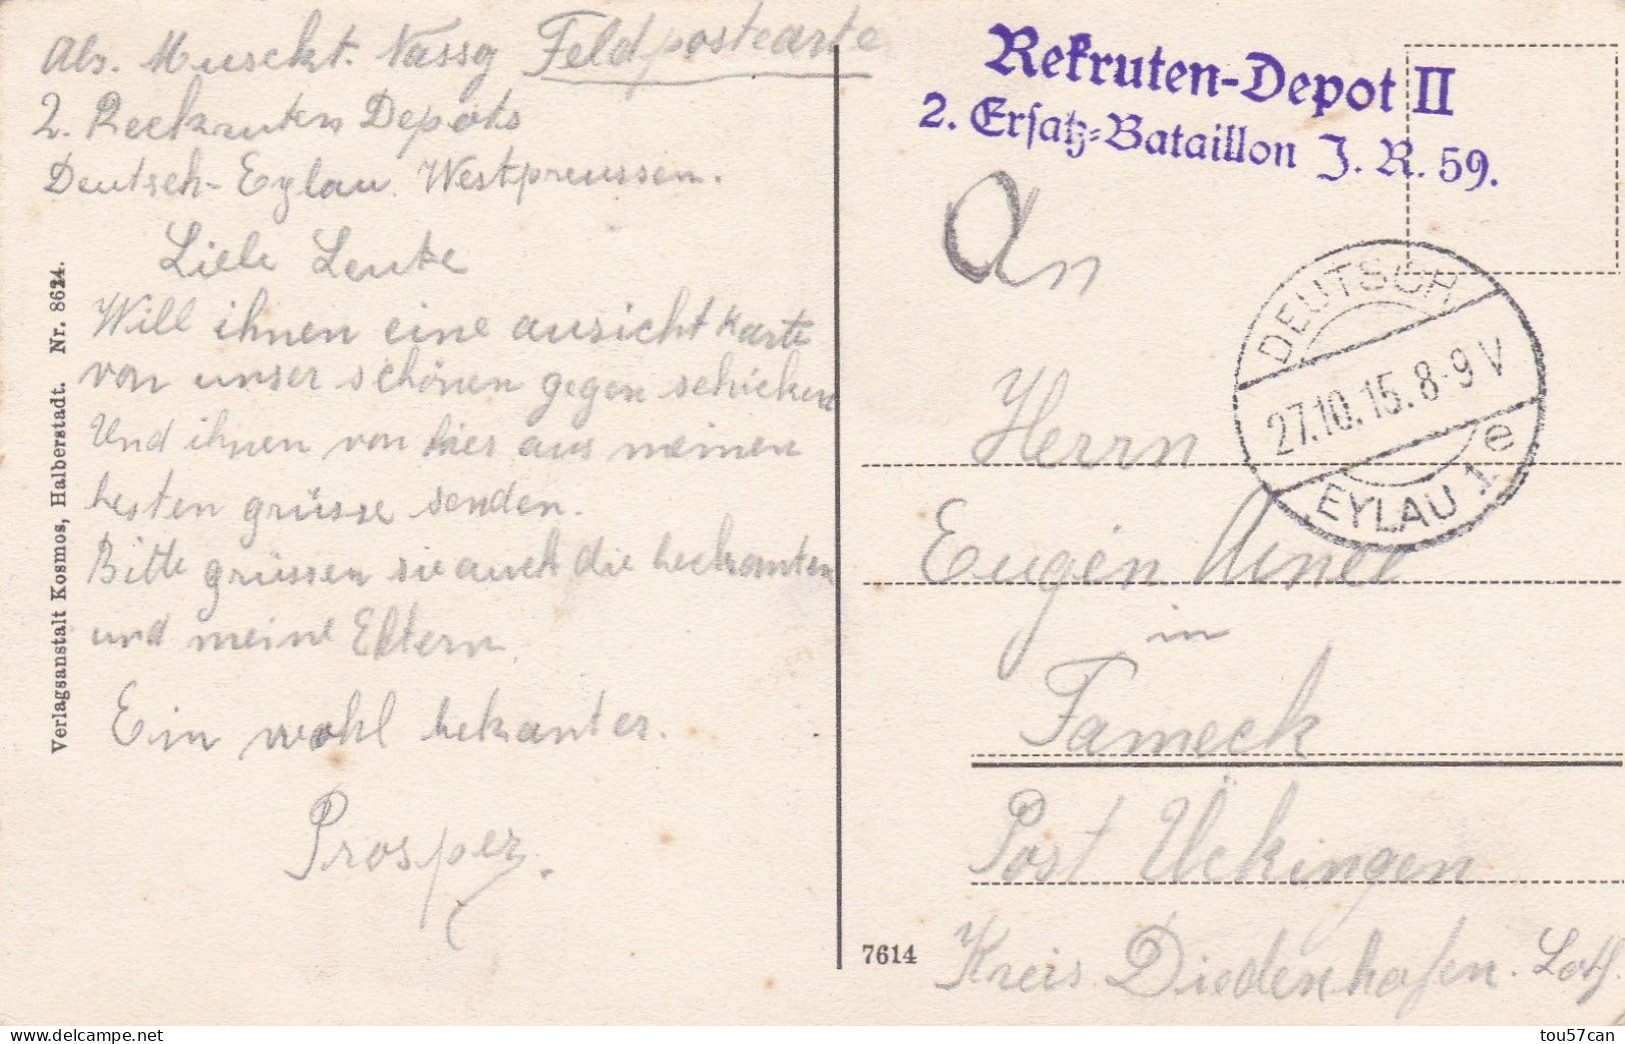 Abs. Musckt. Nassg Feldpostcarte
2. Reckruten Depots
Deutsch-Eylau. Westpreussen.
Liebe Leute
Will ihnen eine ansicht karte
von unser schönen gegen schicken
Und ihnen von hier aus meinen
besten grüsse senden.
Bitte grüssen sie auch die beckanten
und meine Eltern.
Ein wohl bekanter.
Prosper.
Verlagsanstalt Kosmos, Halberstadt. Nr. 8624.
Rekruten-Depot II
2. Ersatz-Bataillon J. R. 59.
DEUTSCH
27.10.15.8-9V
EYLAU 1 e
An
Herrn
Eugén
in
Fameck
Post Ückingen
Kreis Diedenhofen. Loth.
7614
tou57can